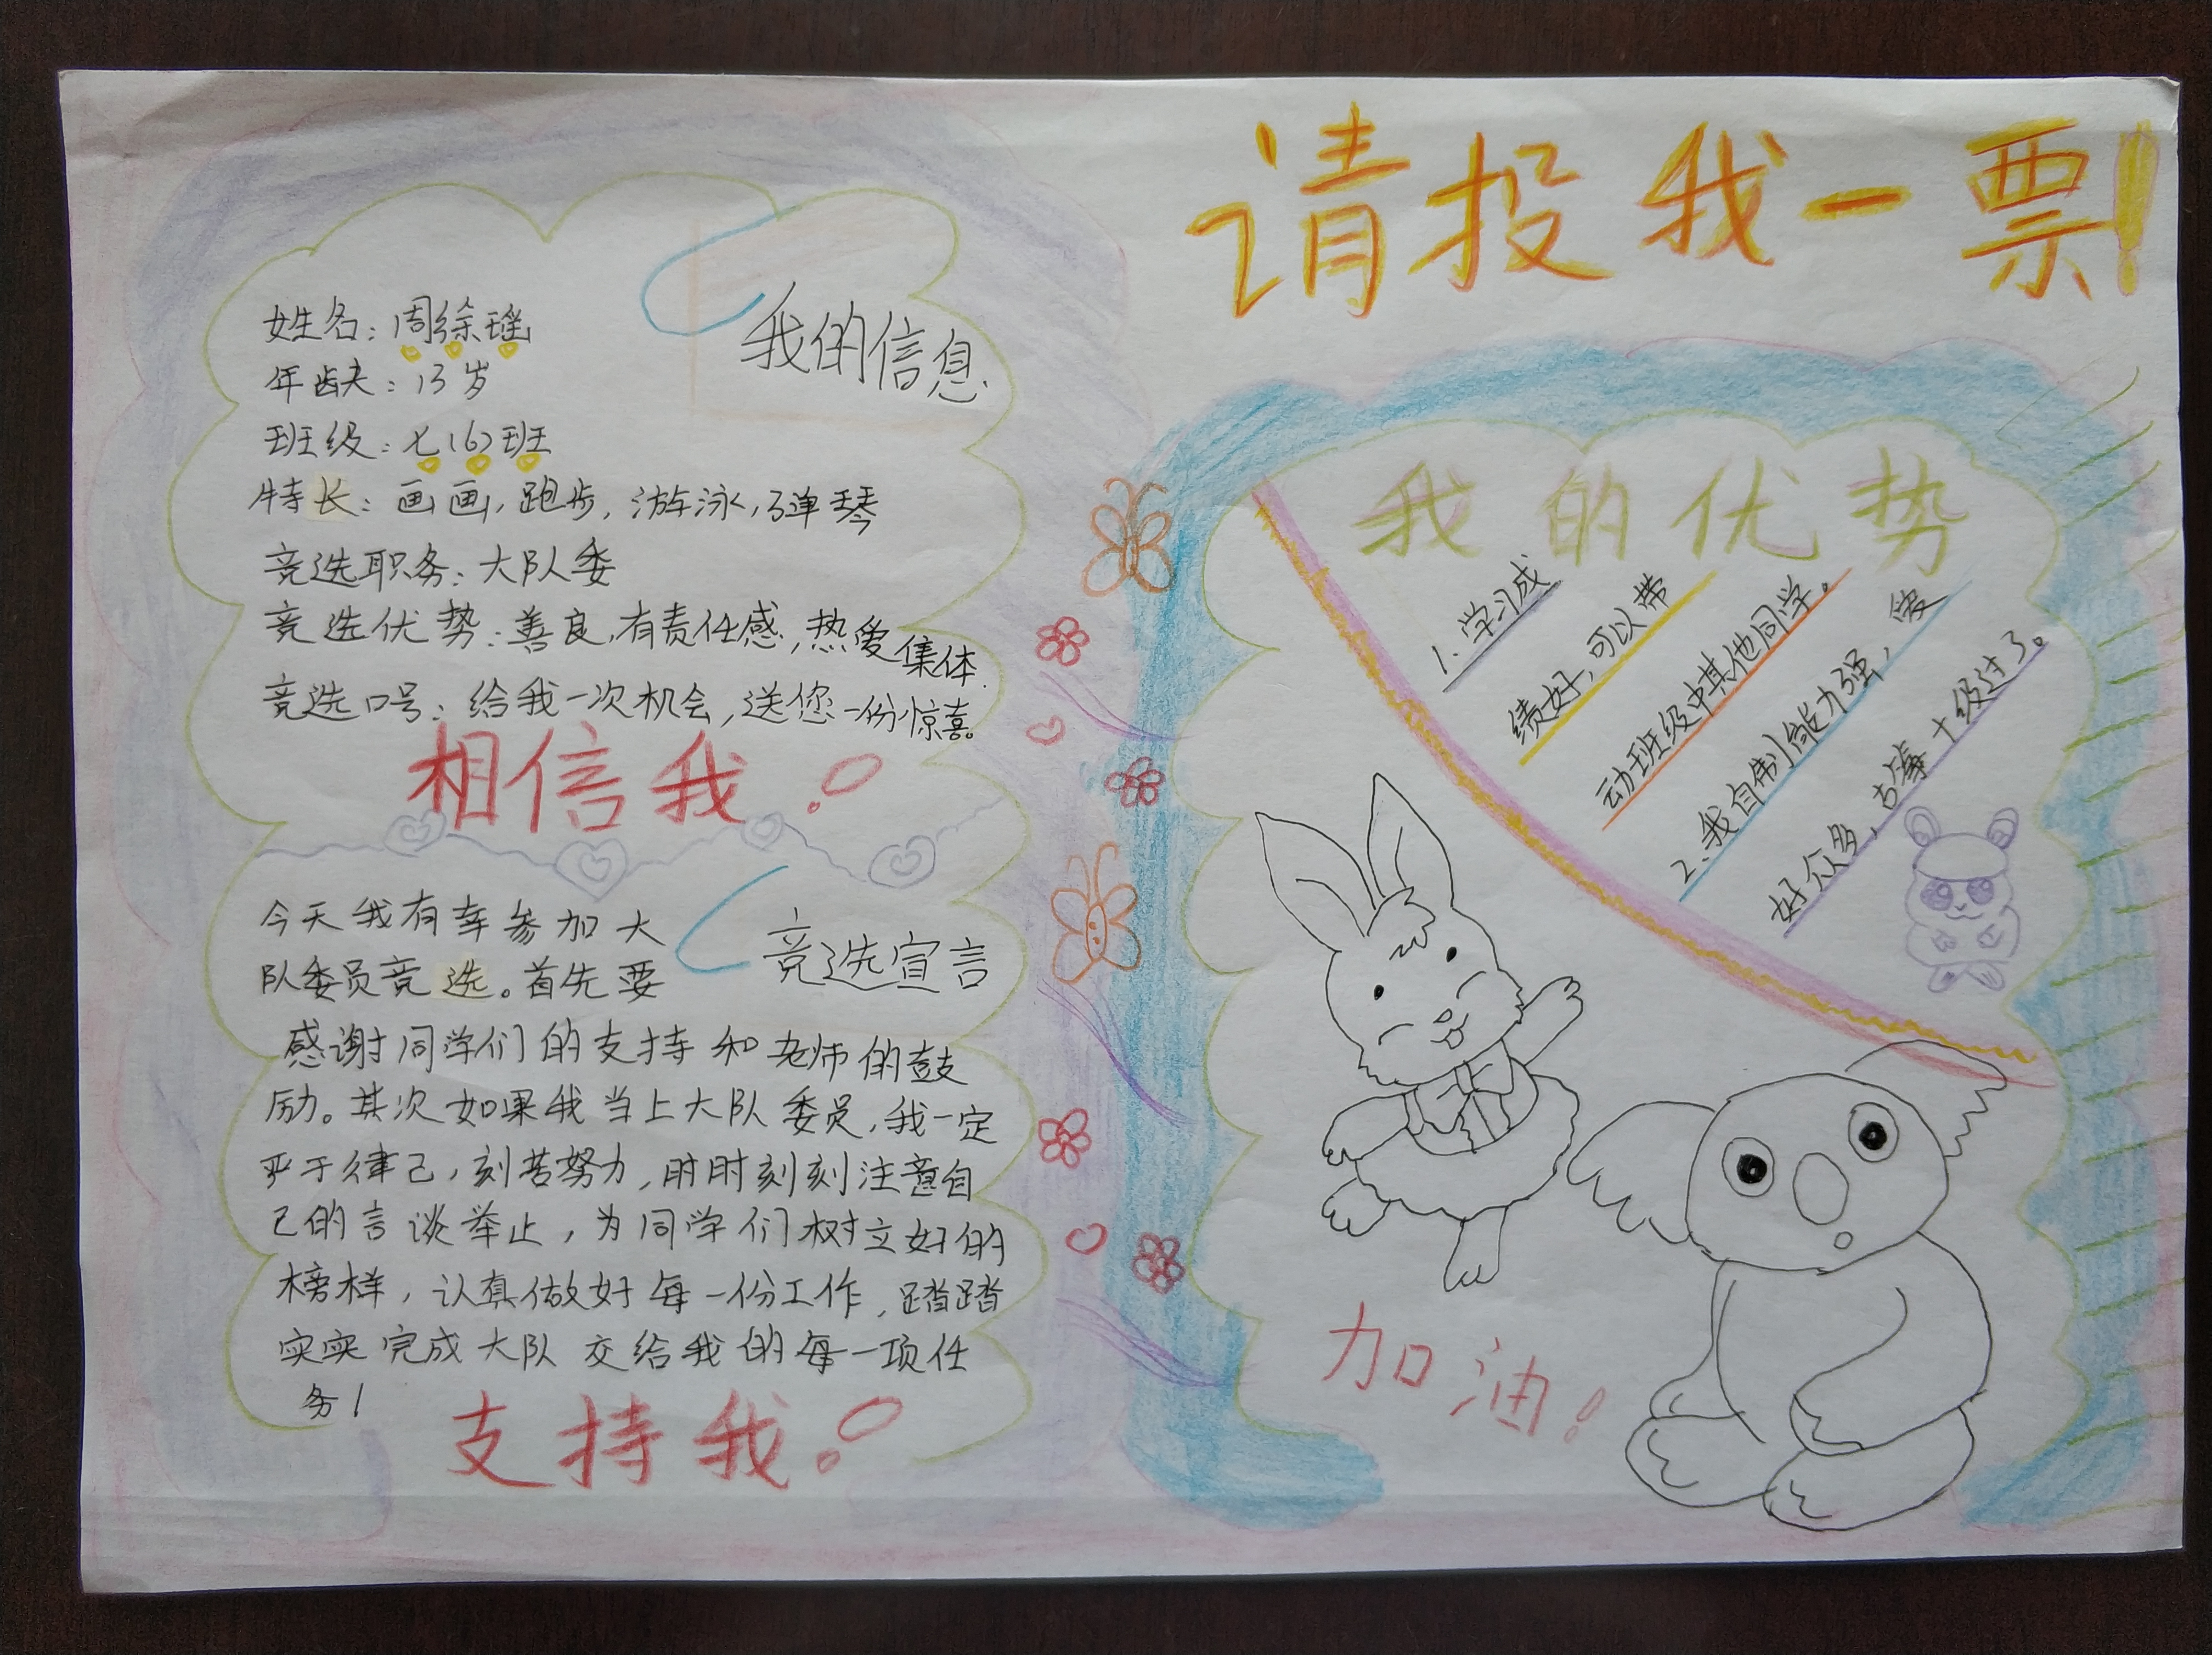 请投我一票!
我的信息
姓名:周徐瑶
年龄:13岁
班级:七(6)班
特长:画画,跑步,游泳,弹琴
竞选职务:大队委
竞选优势:善良,有责任感,热爱集体.
竞选口号:给我一次机会,送您一份惊喜。
相信我!
竞选宣言
今天我有幸参加大
队委员竞选。首先要
感谢同学们的支持和老师的鼓
励。其次如果我当上大队委员,我一定
严于律己,刻苦努力,时时刻刻注意自
己的言谈举止,为同学们树立好的
榜样,认真做好每一份工作,踏踏
实实完成大队交给我的每一项任
务!
支持我!
我的优势
1.学习成
绩好,可以带
动班级中其他同学。
2.我自制能力强,爱
好众多,古筝十级过了。
加油!